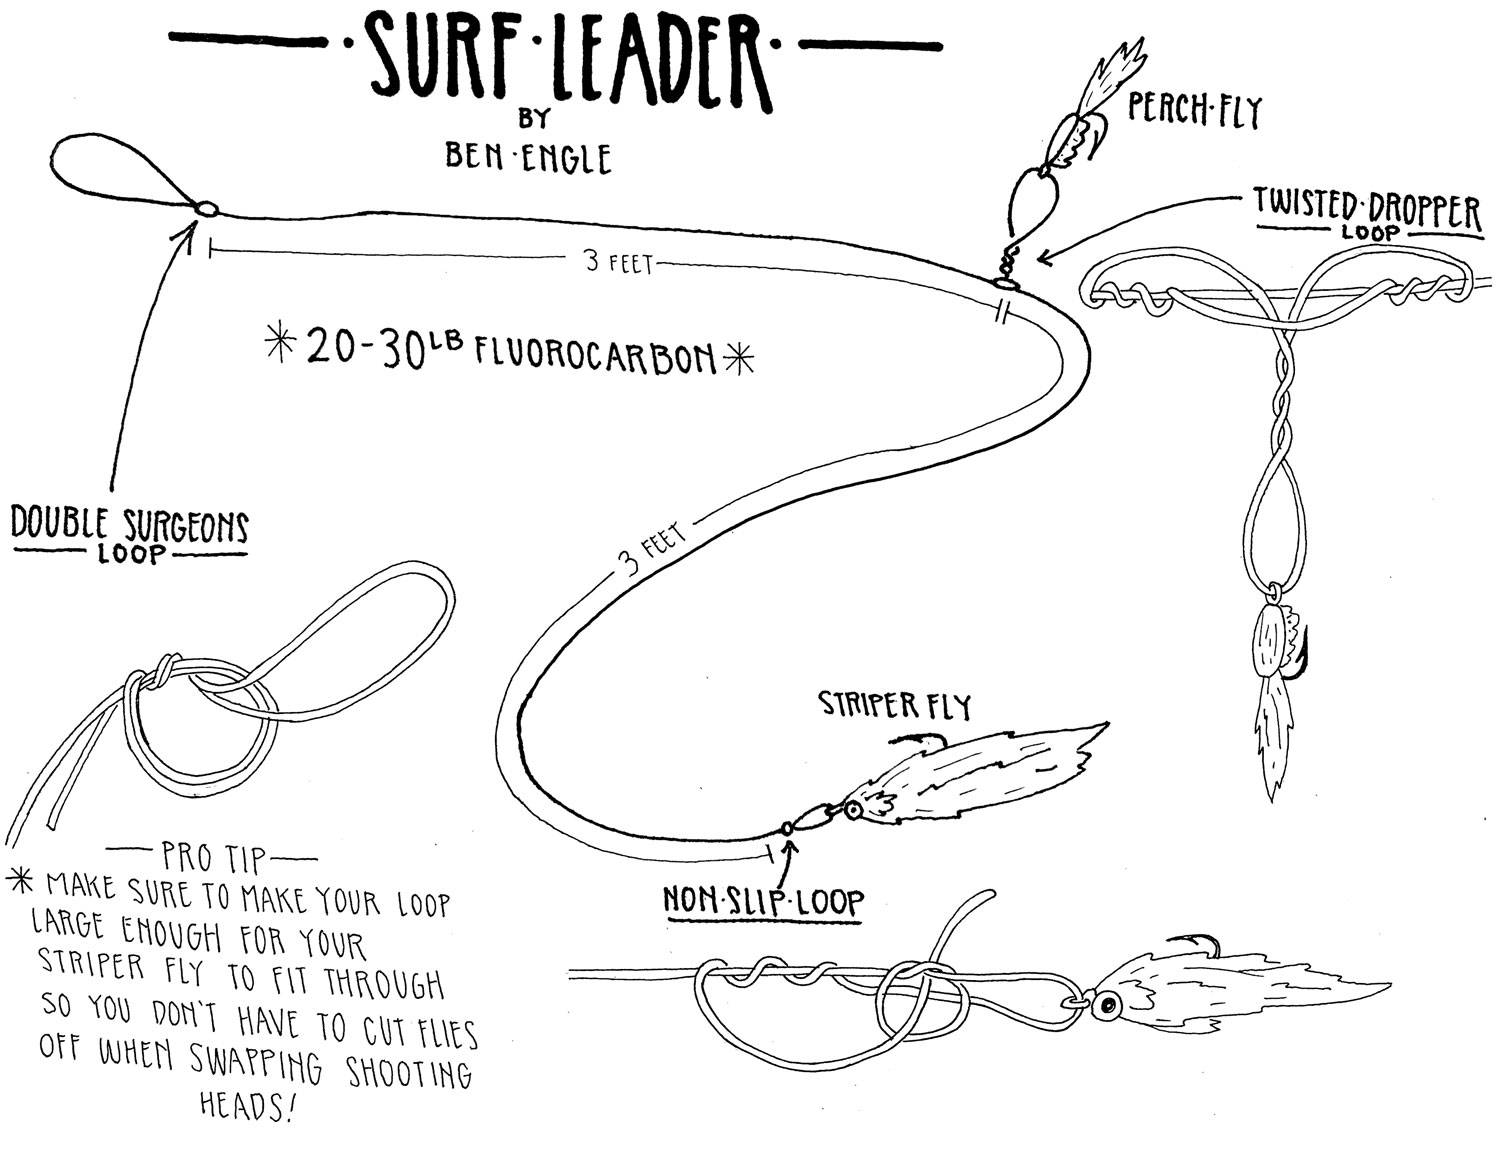 SURF·LEADER
BY
BEN·ENGLE
PERCH·FLY
TWISTED·DROPPER
LOOP
3 FEET
*20-30LB FLUOROCARBON*
DOUBLE SURGEONS
LOOP
3 FEET
STRIPER FLY
NON·SLIP·LOOP
PRO TIP
* MAKE SURE TO MAKE YOUR LOOP
LARGE ENOUGH FOR YOUR
STRIPER FLY TO FIT THROUGH
SO YOU DON'T HAVE TO CUT FLIES
OFF WHEN SWAPPING SHOOTING
HEADS!